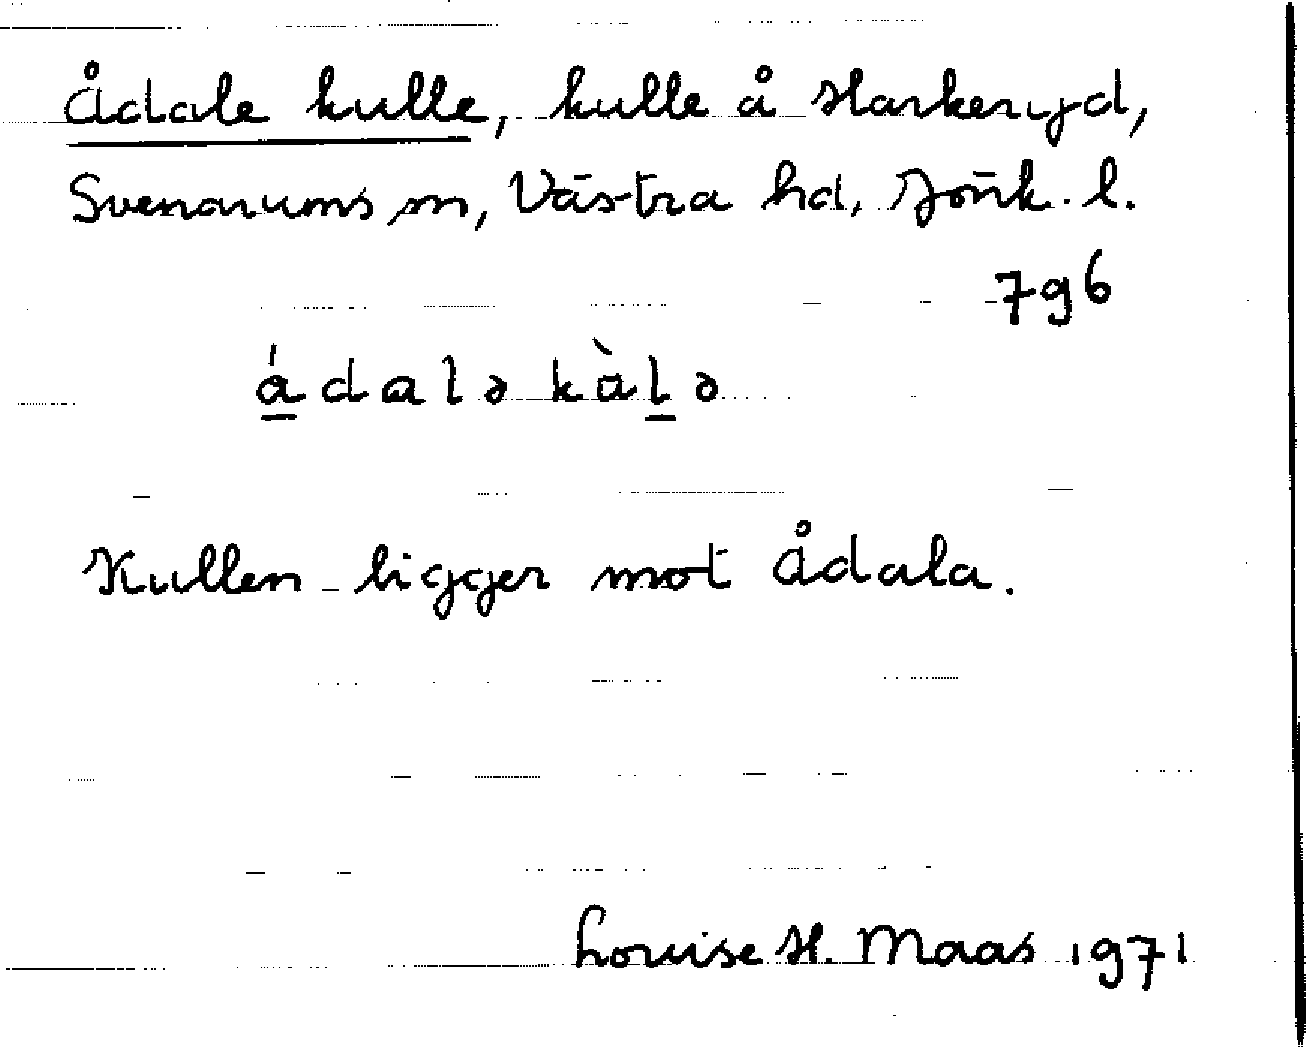 Ådale kulle, kulle å Harkeryd,
Svenarums sn, Västra hd, Jönk. l.
796
ádaləkàlə
Kullen ligger mot Ådala.
Louise H. Maas 1971